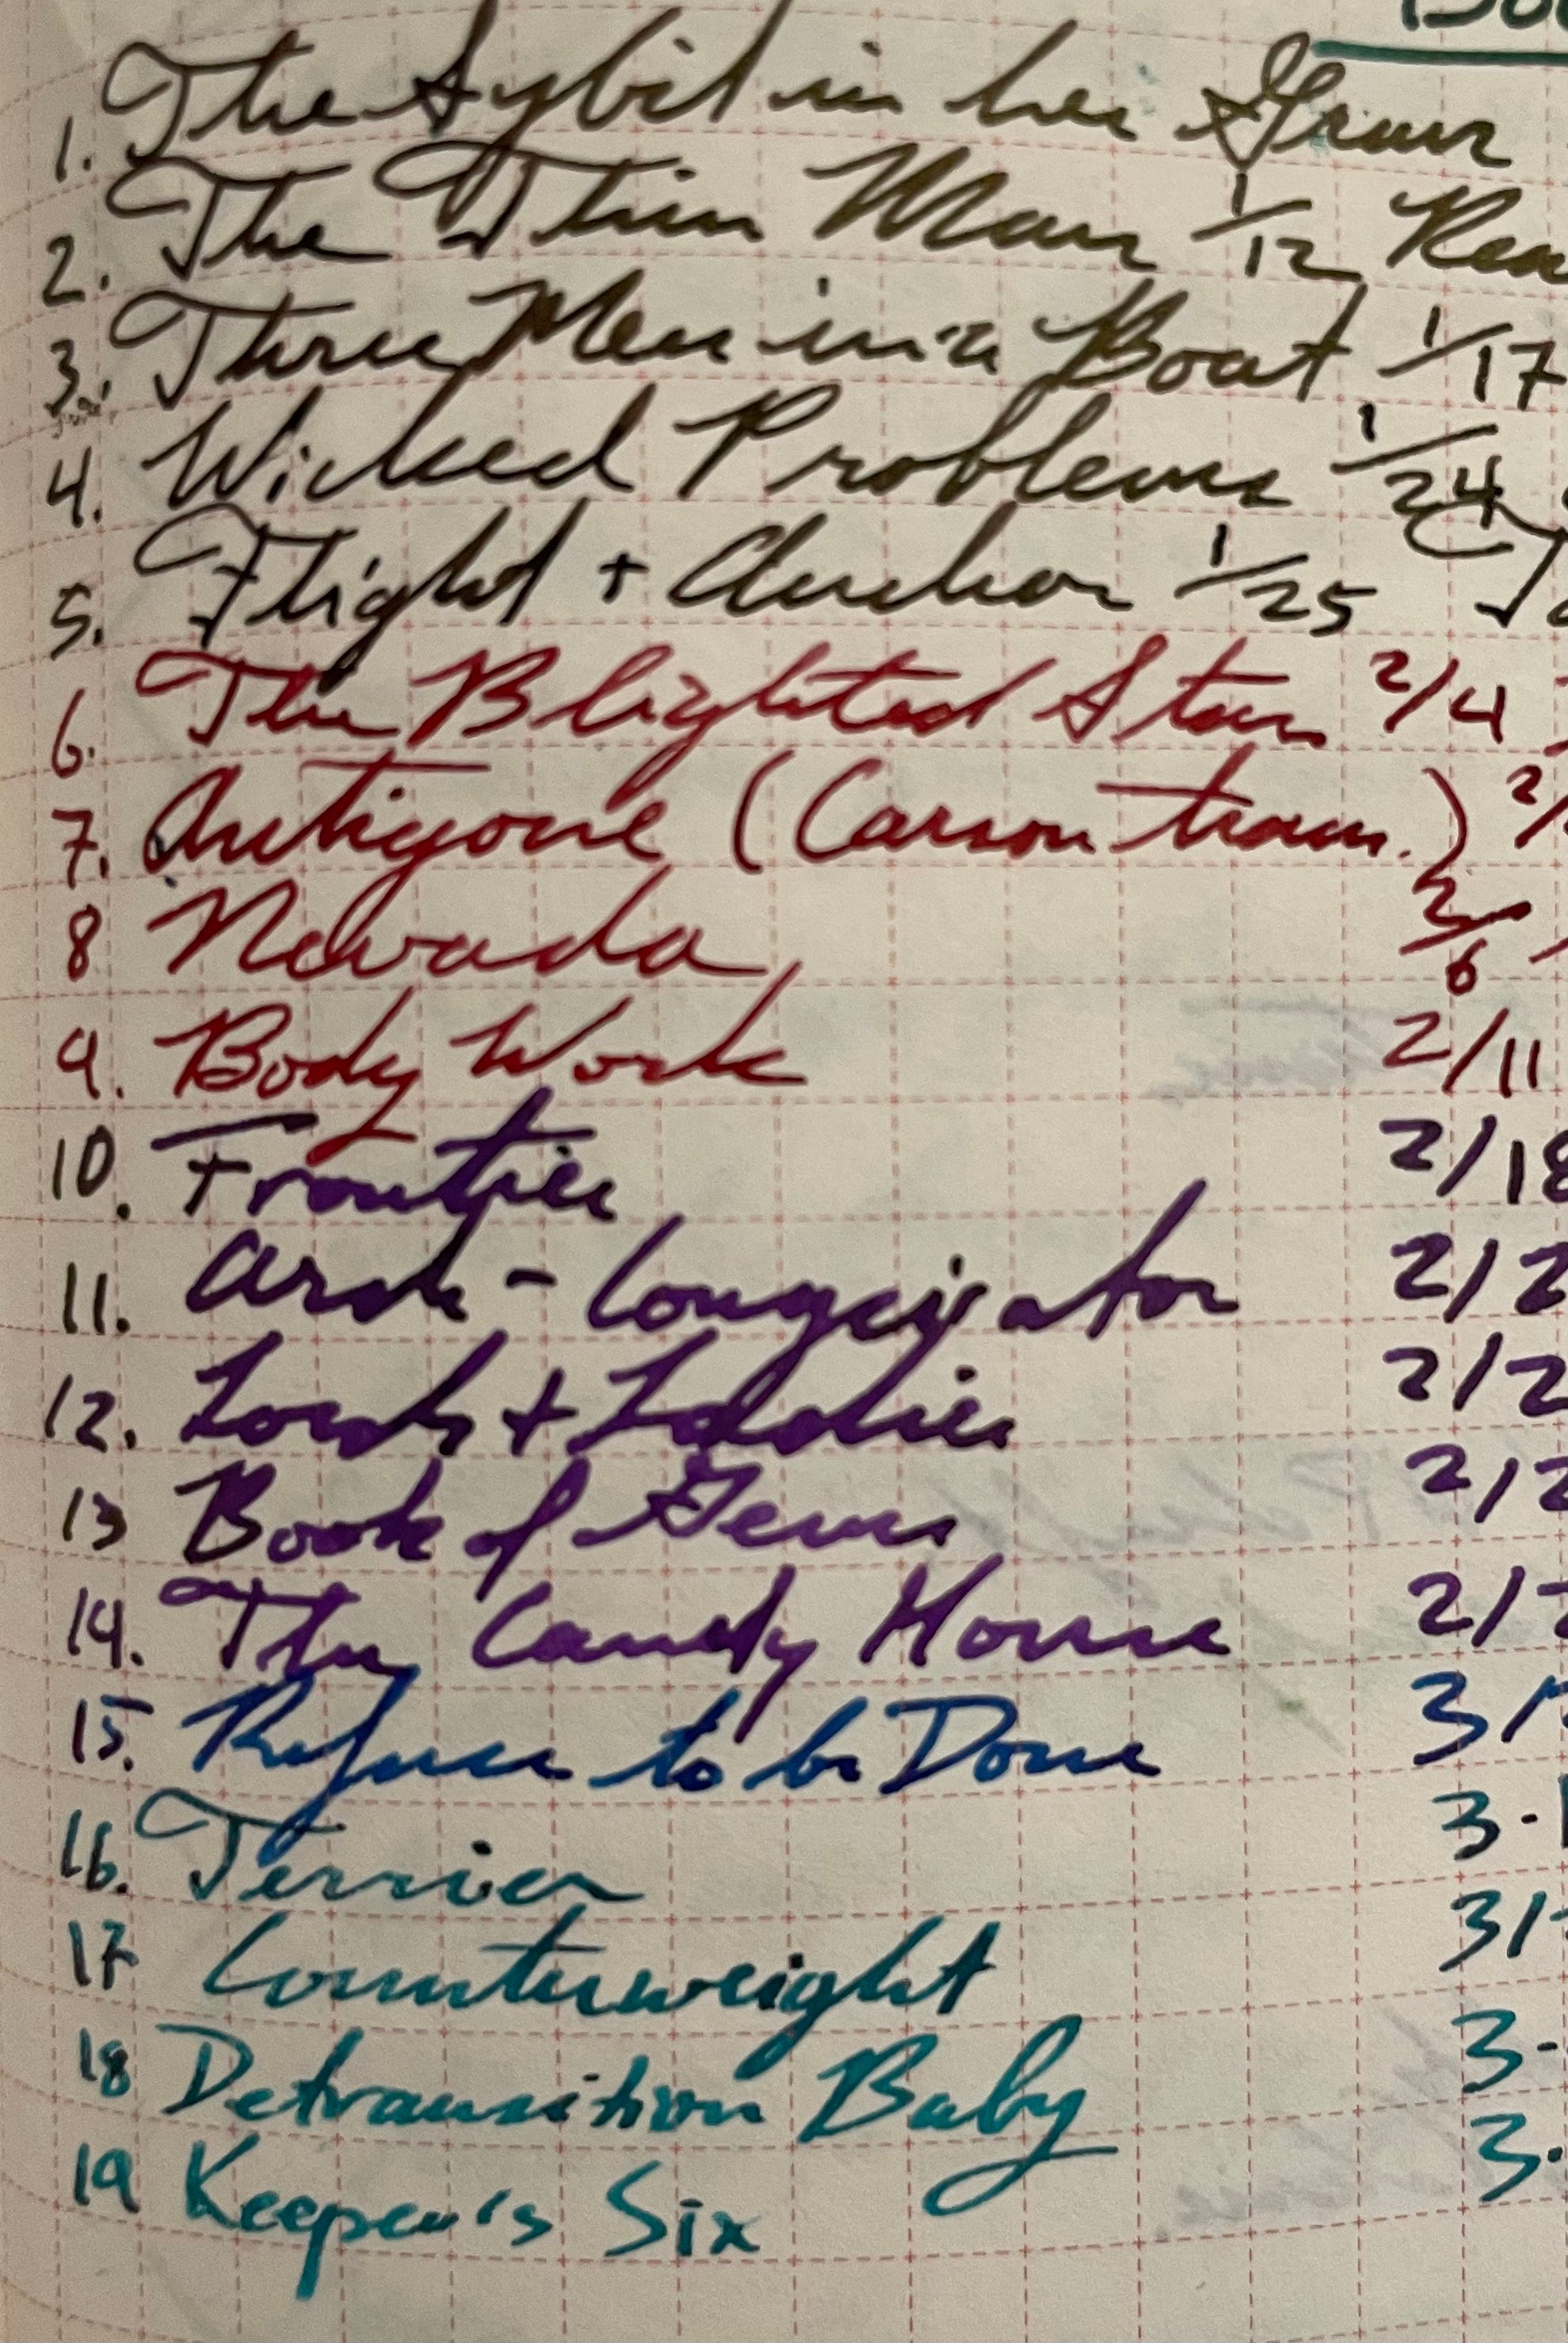 1. The Sybil in her Grave
2. The Thin Man 1/12 Rea
3. Three Men in a Boat 1/17
4. Wicked Problems 1/24
5. Flight + Anchor 1/25
6. The Blighted Stars 2/4
7. Antigone (Carson trans.) 2/
8 Nevada 2/6
9. Body Work 2/11
10. Frontier 2/18
11. Arch-Conspirator 2/2
12. Lords + Ladies 2/2
13 Book of Gems 2/2
14. The Candy House 2/2
15. Refuse to be Done 3/
16. Terrier 3-1
17 Counterweight 3/
18 Detransition Baby 3-
19 Keeper's Six 3-